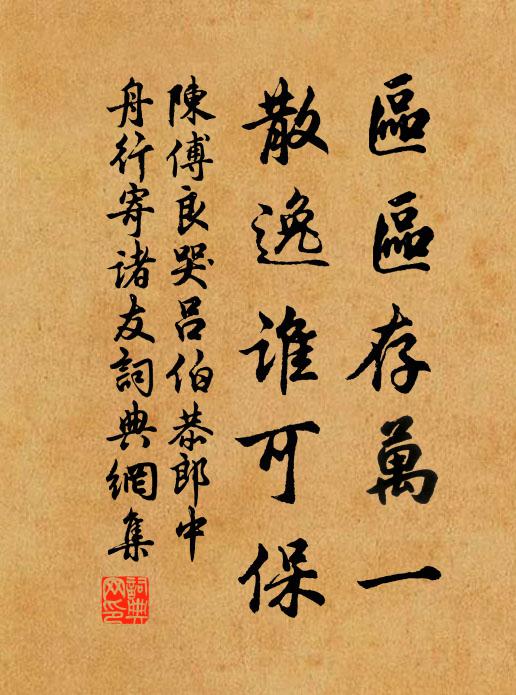 區區存萬一
散逸谁可保
陳傅良哭吕伯恭郎中
舟行寄诸友詞典網集
詞典
网印